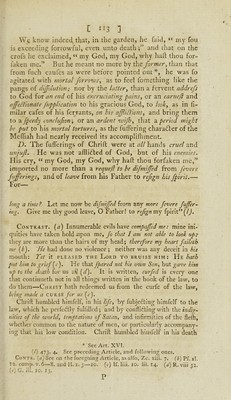 [ 113 ]
We know indeed that, in the garden, he said, “ my ſoul
is exceeding ſorrowful, even unto death;” and that on the
croſs he exclaimed, “ my God, my God, why haſt thou for-
ſaken me.” But he meant no more by the former, than that
from ſuch cauſes as were before pointed out *, he was ſo
agitated with mortal ſoreneſs, as to feel ſomething like the
pangs of diſſolution; nor by the latter, than a fervent addreſs
to God for an end of his excruciating pains, or an earneſt and
affectionate ſupplication to his gracious God, to look, as in ſi-
milar caſes of his ſervants, on his afflictions, and bring them
to a ſpeedy concluſion, or an ardent wiſh, that a period might
be put to his mortal tortures, as the ſuffering character of the
Meſſiah had nearly received its accompliſhment.
D. The ſufferings of Chriſt were at all hands cruel and
unjuſt. He was not afflicted of God, but of his enemies.
His cry, “ my God, my God, why haſt thou forſaken me,”
imported no more than a requeſt to be diſmiſſed from ſevere
ſufferings, and of leave from his Father to reſign his ſpirit.—
For—
long a time? Let me now be diſmiſſed from any more ſevere ſuffer-
ing. Give me thy good leave, O Father! to reſign my ſpirit” (l).
Contrast. (a) Innumerable evils have compaſſed me: mine ini-
quities have taken hold upon me, ſo that I am not able to look up:
they are more than the hairs of my head; therefore my heart faileth
me (b). He had done no violence; neither was any deceit in his
mouth: Yet it pleased the Lord to bruise him: He hath
put him to grief (c). He that ſpared not his own Son, but gave him
up to the death for us all (d). It is written, curſed is every one
that continueth not in all things written in the book of the law, to
do them—Christ hath redeemed us from the curſe of the law,
being made a curse for us (e).
Chriſt humbled himſelf, in his life, by ſubjecting himſelf to the
law, which he perfectly fulfilled; and by conflicting with the indig-
nities of the world, temptations of Satan, and infirmities of the fleſh,
whether common to the nature of men, or particularly accompany-
ing that his low condition. Chriſt humbled himſelf in his death
* See Art. XVI.
(l) 473, 4. See preceding Articles, and following ones.
Contr. (a) See on the foregoing Article, as alſo, Zec. xiii. 7. (b) Pſ. xl.
12. comp. v. 6—8. and H. x. 5—10. (c) If. liii. 10. liii. 14. (d) R. viii. 32.
(e) G. iii. 10. 13.
P